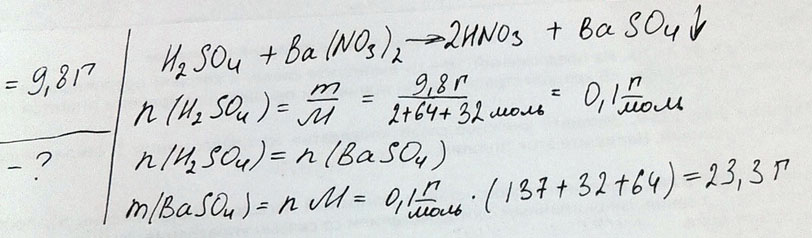 = 9,8 г
- ?
H₂SO₄ + Ba(NO₃)₂ → 2HNO₃ + BaSO₄↓
n(H₂SO₄) = m/M = 9,8 г/2+64+32 моль = 0,1 г/моль
n(H₂SO₄) = n(BaSO₄)
m(BaSO₄) = n M = 0,1 г/моль · (137+32+64) = 23,3 г